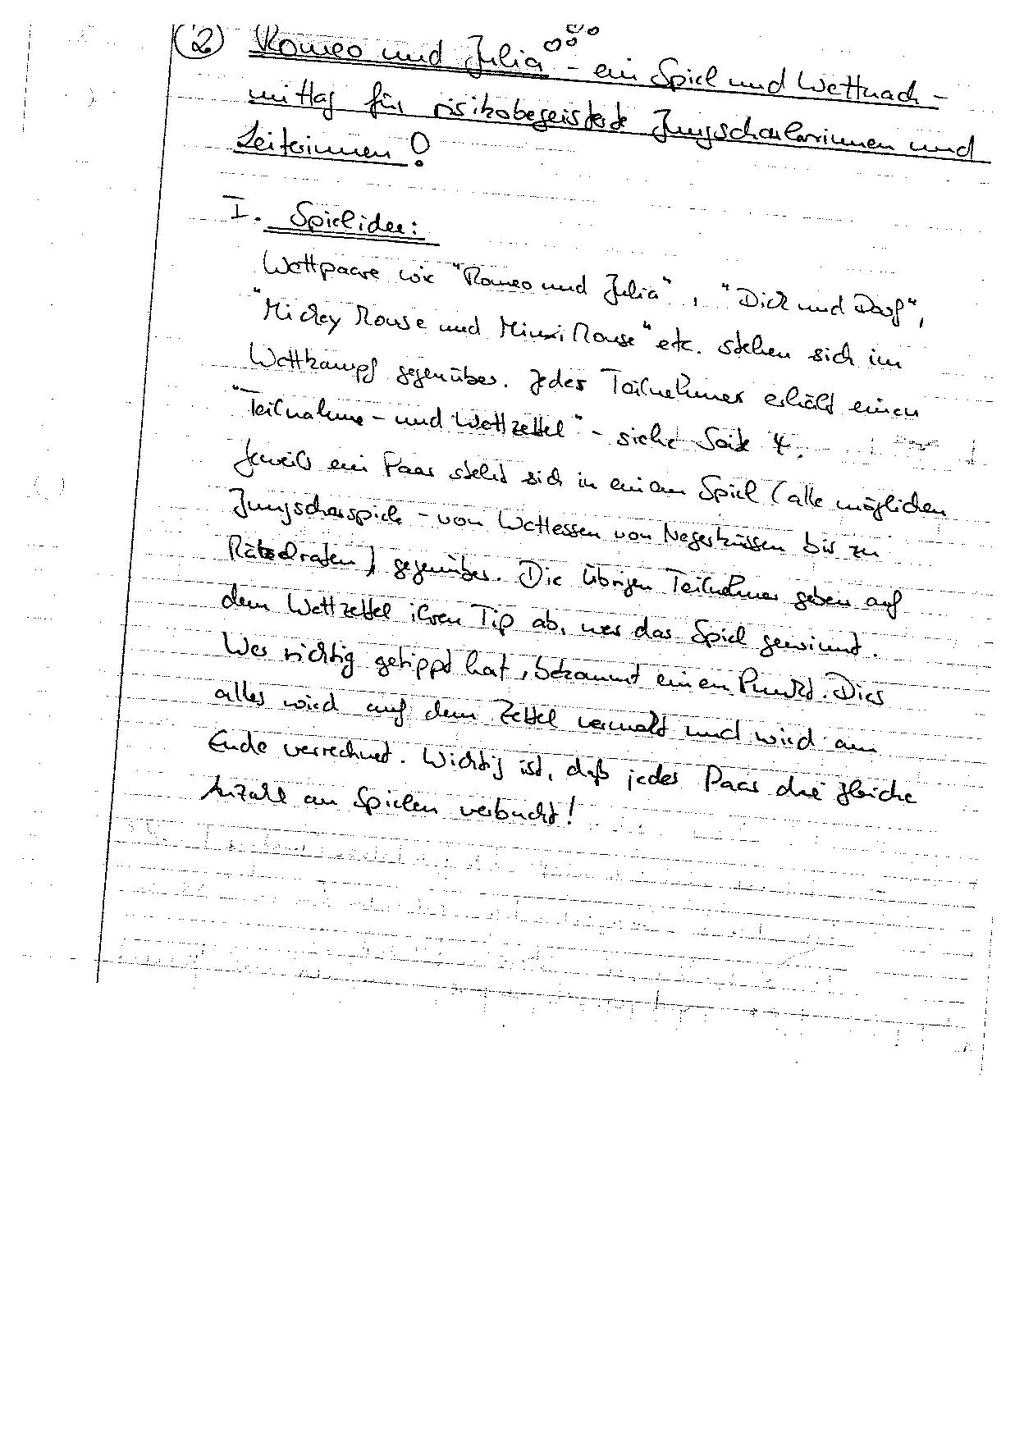 (2) Romeo und Julia - ein Spiel und Wettnach-
mittag für risikobegeisterte Jungscharlerinnen und
Leiterinnen!
I. Spielidee:
Wettpaare wie "Romeo und Julia", "Dick und Doof",
"Mickey Mouse und Minni Mouse" etc. stehen sich im
Wettkampf gegenüber. Jeder Teilnehmer erhält einen
"Teilnahme- und Wettzettel" - siehe Seite 4.
Jeweils ein Paar steht sich in einem Spiel (alle möglichen
Jungscharspiele - von Wettessen von Negerküssen bis zu
Rätselraten) gegenüber. Die übrigen Teilnehmer geben auf
dem Wettzettel ihren Tip ab, wer das Spiel gewinnt.
Wer richtig getippt hat, bekommt einen Punkt. Dies
alles wird auf dem Zettel vermerkt und wird am
Ende verrechnet. Wichtig ist, daß jedes Paar die gleiche
Anzahl an Spielen verbucht!